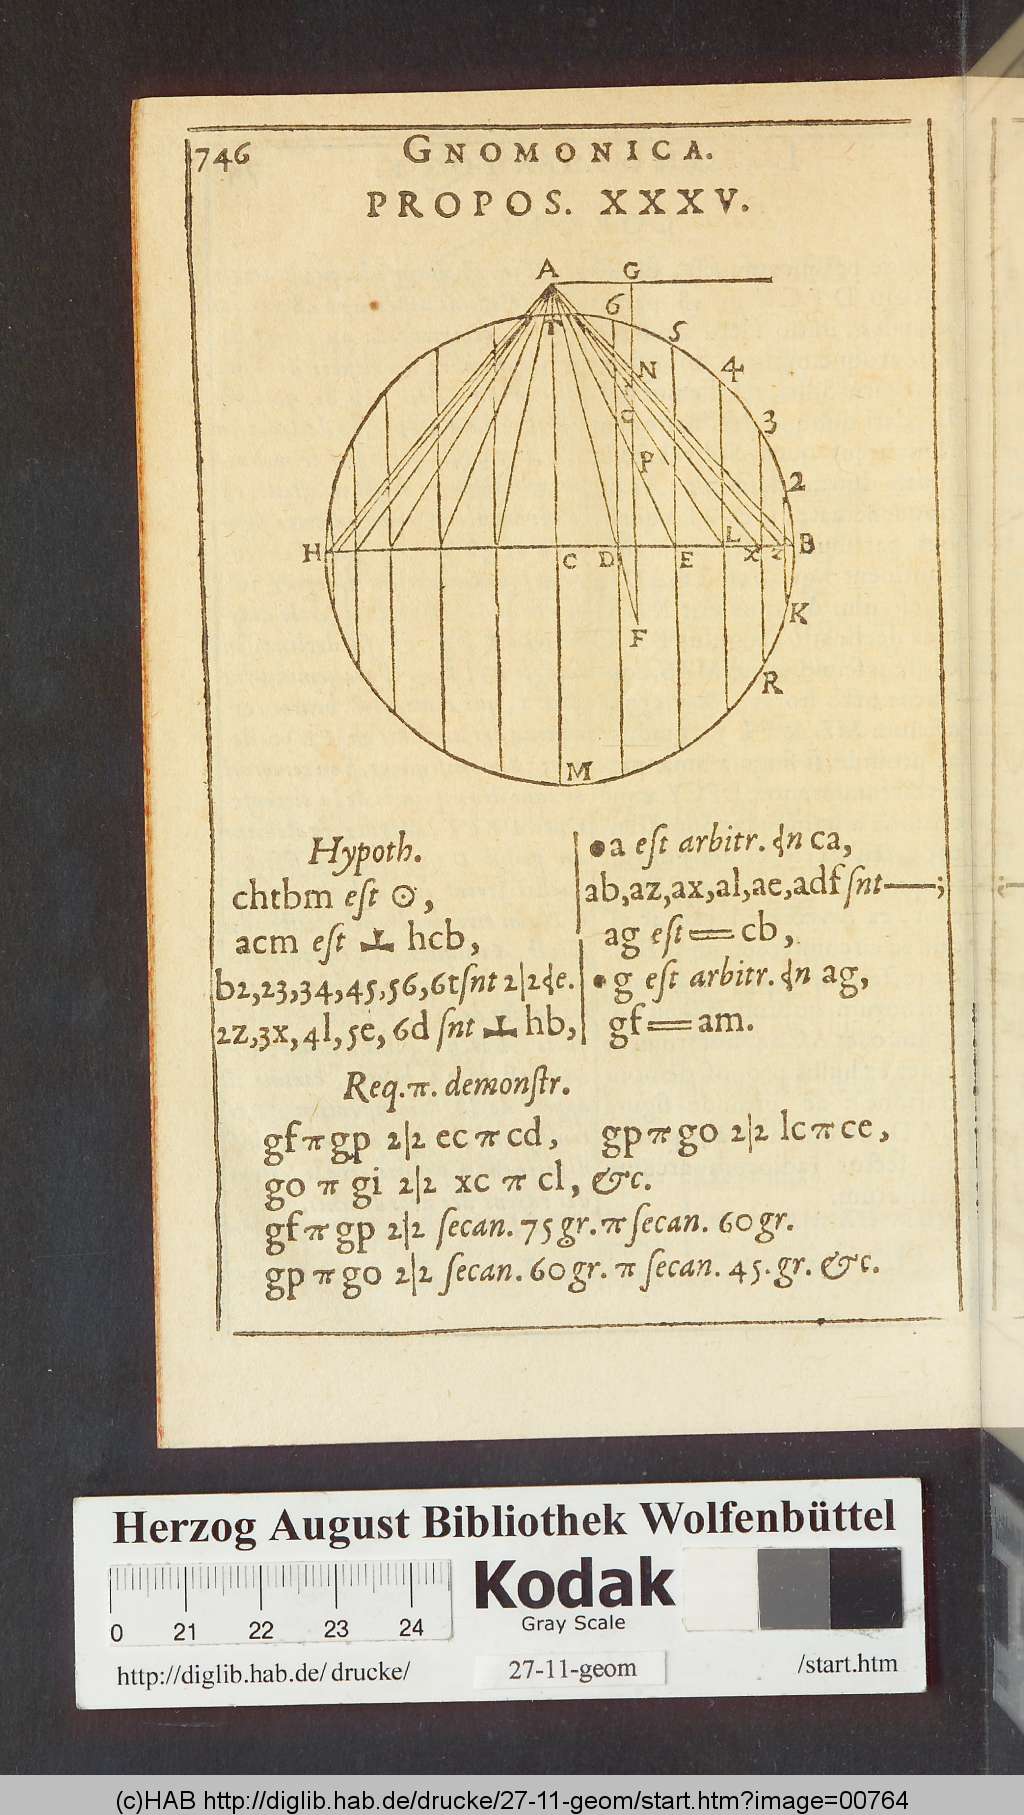 746
GNOMONICA.
PROPOS. XXXV.
A G
6
T 5
N 4
3
O
P
2
H C D E L X Z B
K
F
R
M
Hypoth.
chtbm eſt ⊙,
acm eſt ⊥ hcb,
b2,23,34,45,56,6tſnt 2|2 ɖe.
2z,3x,4l,5e, 6d ſnt ⊥ hb,
•a eſt arbitr. ɖn ca,
ab,az,ax,al,ae,adf ſnt—;
ag eſt = cb,
•g eſt arbitr. ɖn ag,
gf = am.
Req.π. demonſtr.
gf π gp 2|2 ec π cd, gp π go 2|2 lc π ce,
go π gi 2|2 xc π cl, &c.
gf π gp 2|2 ſecan. 75 gr. π ſecan. 60 gr.
gp π go 2|2 ſecan. 60 gr. π ſecan. 45. gr. &c.
Herzog August Bibliothek Wolfenbüttel
Kodak
Gray Scale
0 21 22 23 24
http://diglib.hab.de/drucke/ 27-11-geom /start.htm
(c)HAB http://diglib.hab.de/drucke/27-11-geom/start.htm?image=00764